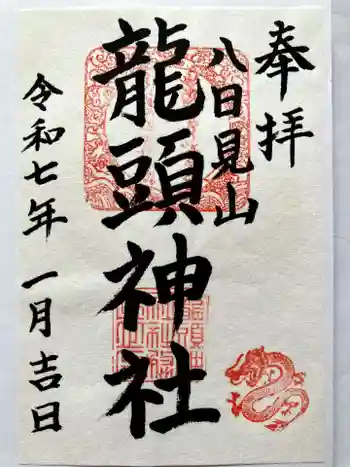 奉拝
八日見山
龍頭神社
令和七年 一月吉日